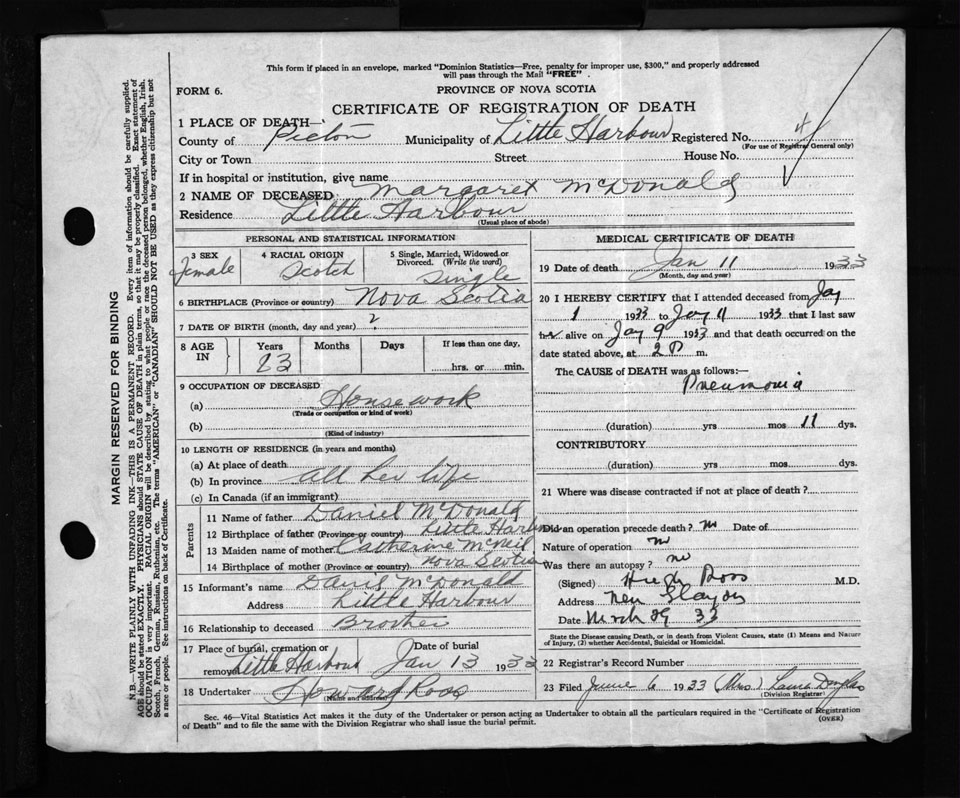 This form if placed in an envelope, marked "Dominion Statistics—Free, penalty for improper use, $300," and properly addressed
will pass through the Mail "FREE" .
FORM 6.
PROVINCE OF NOVA SCOTIA
CERTIFICATE OF REGISTRATION OF DEATH
1 PLACE OF DEATH—
County of Pictou Municipality of Little Harbour Registered No. 4
(For use of Registrar General only)
City or Town Street House No.
If in hospital or institution, give name
2 NAME OF DECEASED Margaret McDonald
Residence Little Harbour
(Usual place of abode)
PERSONAL AND STATISTICAL INFORMATION
3 SEX 4 RACIAL ORIGIN 5 Single, Married, Widowed or
Divorced. (Write the word)
Female Scotch Single
6 BIRTHPLACE (Province or country) Nova Scotia
7 DATE OF BIRTH (month, day and year) ?
8 AGE IN Years Months Days If less than one day,
83 hrs. or min.
9 OCCUPATION OF DECEASED
(a) Housework
(Trade or occupation or kind of work)
(b)
(Kind of industry)
10 LENGTH OF RESIDENCE (in years and months)
(a) At place of death
(b) In province all her life
(c) In Canada (if an immigrant)
Parents
11 Name of father Daniel McDonald
12 Birthplace of father (Province or country) Little Harbour
13 Maiden name of mother Catherine McNeil
14 Birthplace of mother (Province or country) Nova Scotia
15 Informant's name Daniel McDonald
Address Little Harbour
16 Relationship to deceased Brother
17 Place of burial, cremation or Date of burial
removal Little Harbour Jan 13 1933
18 Undertaker Howard Ross
(Name and address)
MEDICAL CERTIFICATE OF DEATH
19 Date of death Jan 11 1933
(Month, day and year)
20 I HEREBY CERTIFY that I attended deceased from Jay
1 1933 to Jay 11 1933 that I last saw
her alive on Jay 9 1933 and that death occurred on the
date stated above, at 2 P m.
The CAUSE of DEATH was as follows:—
Pneumonia
(duration) yrs mos 11 dys.
CONTRIBUTORY
(duration) yrs mos dys.
21 Where was disease contracted if not at place of death?
Did an operation precede death? no Date of
Nature of operation no
Was there an autopsy? no
(Signed) Hugh Ross M.D.
Address New Glasgow
Date March 29 33
State the Disease causing Death, or in death from Violent Causes, state (1) Means and Nature
of Injury, (2) whether Accidental, Suicidal or Homicidal.
22 Registrar's Record Number
23 Filed June 6 1933 (Mrs) Laura Douglas
(Division Registrar)
Sec. 46—Vital Statistics Act makes it the duty of the Undertaker or person acting as Undertaker to obtain all the particulars required in the "Certificate of Registration
of Death" and to file the same with the Division Registrar who shall issue the burial permit.
(OVER)
MARGIN RESERVED FOR BINDING
N.B.—WRITE PLAINLY WITH UNFADING INK—THIS IS A PERMANENT RECORD. Every item of information should be carefully supplied.
AGE should be stated EXACTLY. PHYSICIANS should STATE CAUSE OF DEATH in plain terms, so that it may be properly classified. Exact statement of
OCCUPATION is very important. RACIAL ORIGIN will be described by stating to what people or race the deceased person belonged, whether English, Irish,
Scotch, French, German, Russian, Ruthenian, etc. The terms "AMERICAN" or "CANADIAN" SHOULD NOT BE USED as they express citizenship but not
a race or people. See instructions on back of Certificate.